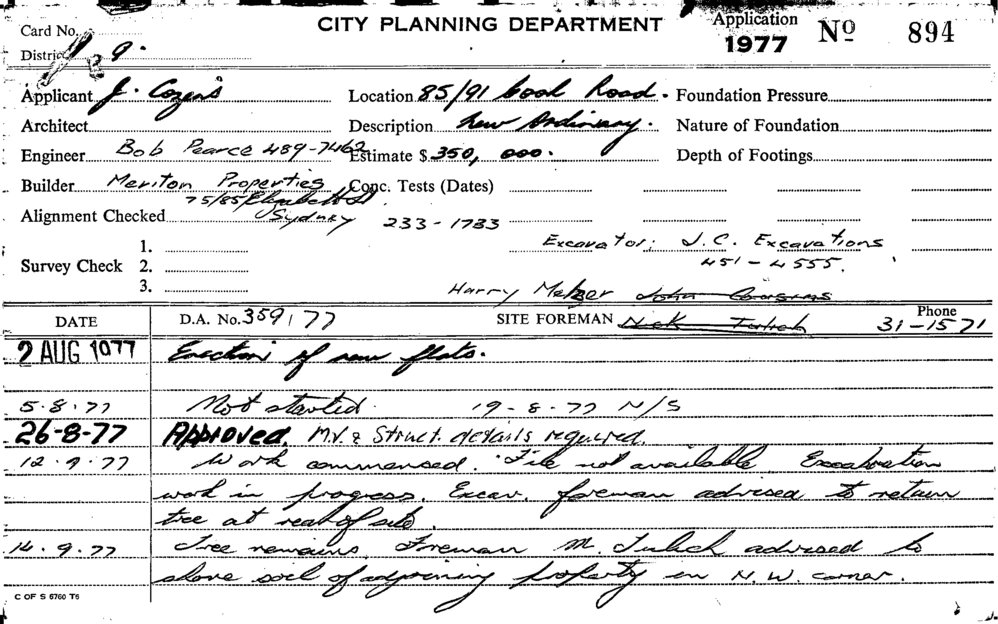 CITY PLANNING DEPARTMENT
Application 1977 Nº 894
Card No.
District 9.
Applicant J. Cozens Location 85/91 Cook Road. Foundation Pressure
Architect Description New Ordinary. Nature of Foundation
Engineer Bob Pearce 489-7462 Estimate $ 350,000. Depth of Footings
Builder Meriton Properties Conc. Tests (Dates)
75/85 Elizabeth St.
Alignment Checked Sydney 233-1783
Excavator: J.C. Excavations
1.
451-4555.
Survey Check 2.
3.
Harry Melzer John
DATE D.A. No. 359/77 SITE FOREMAN Nick Phone 31-1571
2 AUG 1977 Erection of new flats.
5.8.77 Not started. 19-8-77 N/S
26-8-77 Approved. M.V. & Struct. details required.
12.9.77 Work commensed. File not available. Excavation
work in progress. Excav. foreman advised to retain
tree at rear of site.
14.9.77 Tree remains. Foreman M. Tulich advised to
shore soil of adjoining property in N.W. corner.
C OF S 6760 T6